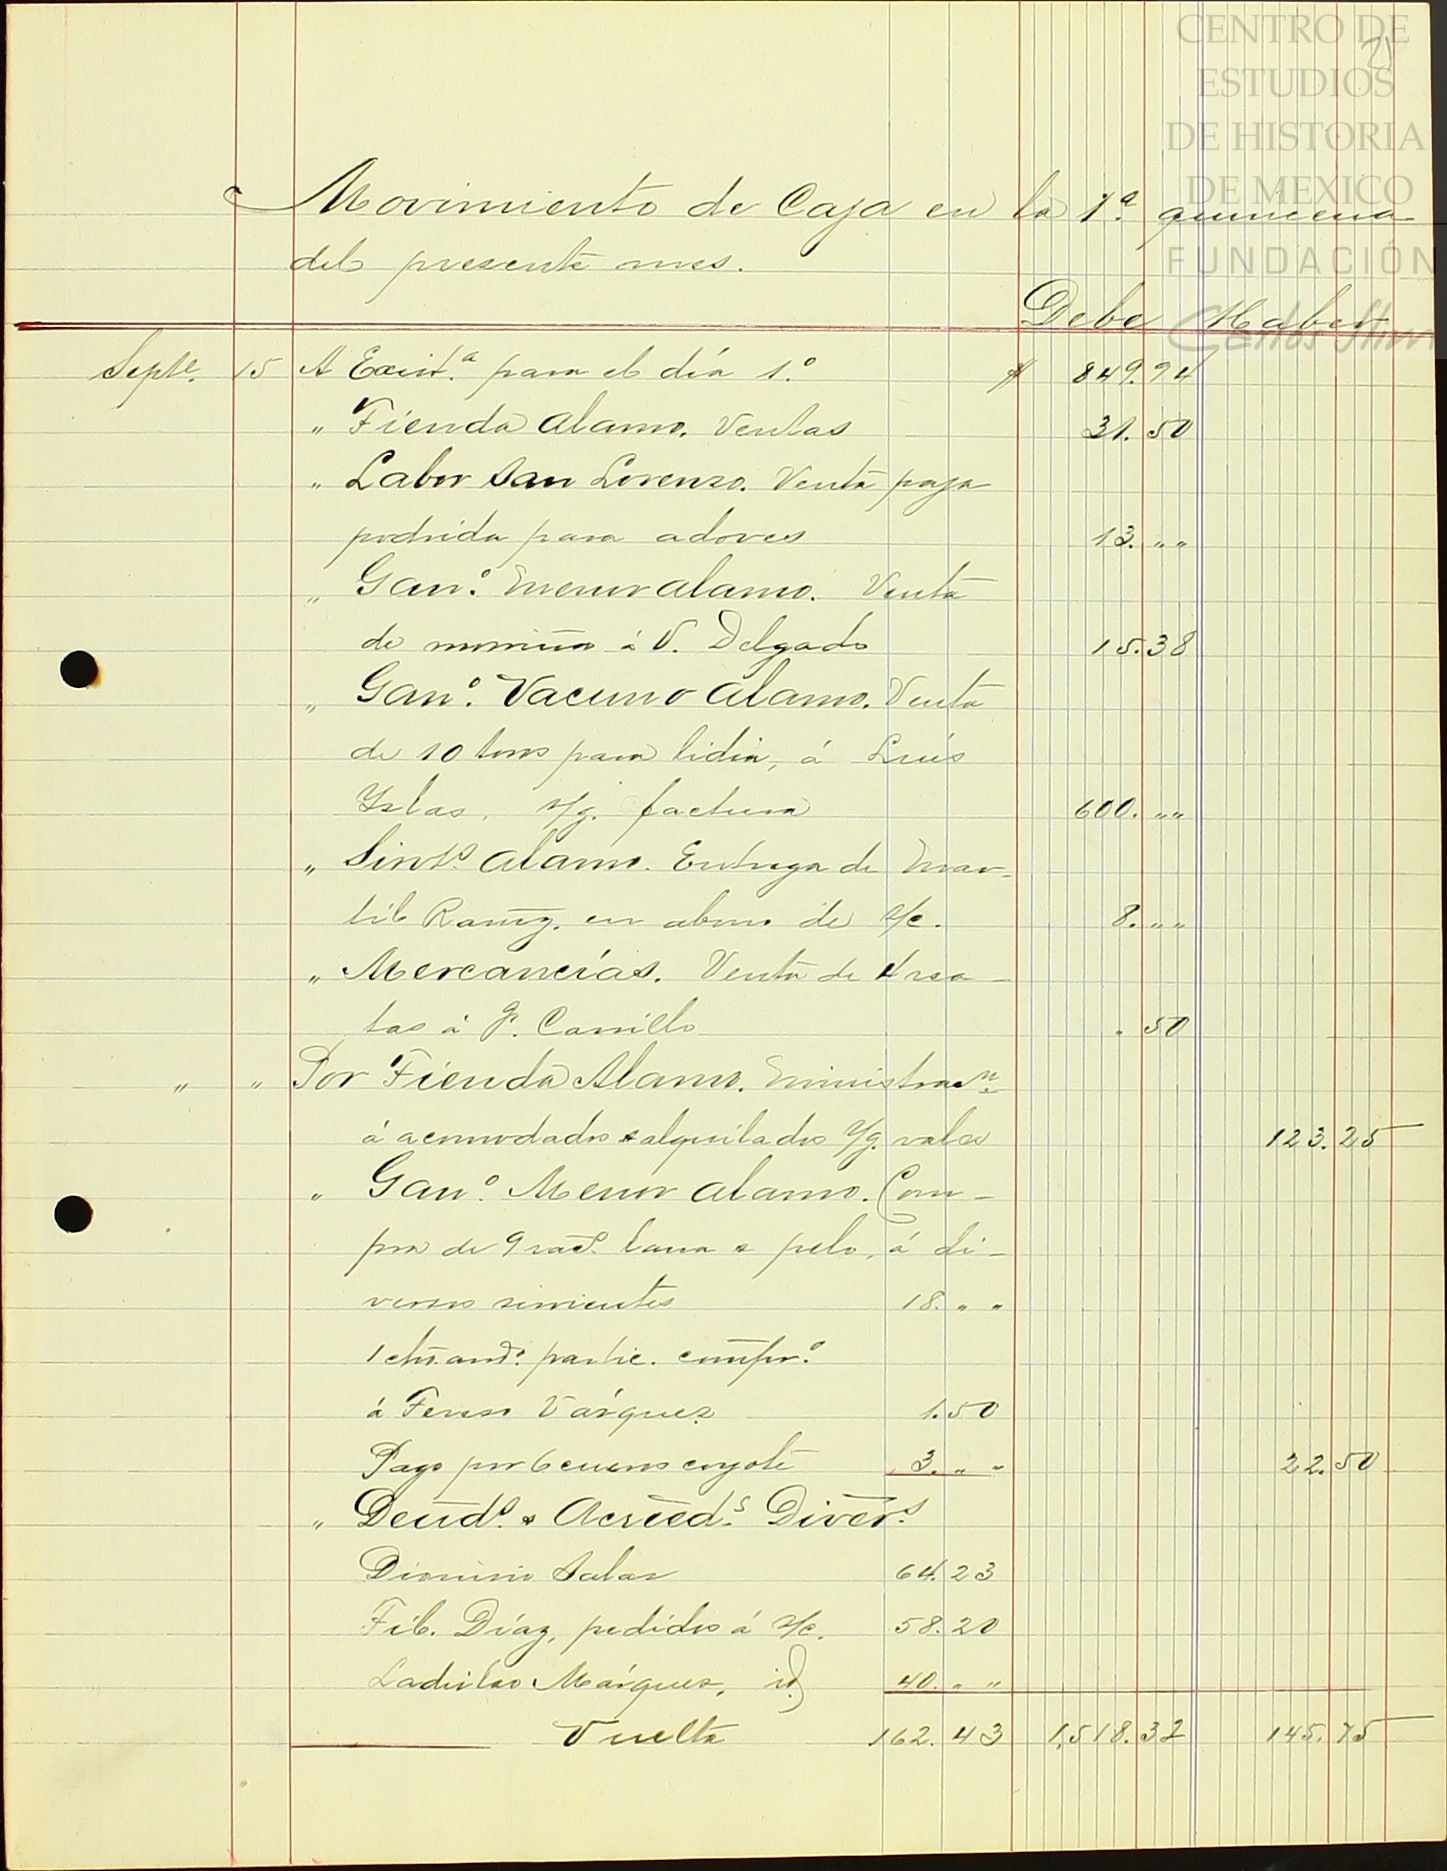 CENTRO DE
ESTUDIOS
DE HISTORIA
DE MEXICO
FUNDACIÓN
Carlos Slim
Movimiento de Caja en la 1ª quincena
del presente mes.
Debe Haber
Septe. 15 A Exist.ª para el día 1.º $ 849.94
" Tienda Alamo. Ventas 31.50
" Labor San Lorenzo. Venta paja
podrida para adoves 13. ""
" Gan.º Menor Alamo. Venta
de á V. Delgado 15.38
" Gan.º Vacuno Alamo. Venta
de 10 toros para lidia, á Luis
Yslas, s/g. factura 600. ""
" Sirvts. Alamo. Entrega de Mar-
til Ramz. en abono de s/c. 8. ""
" Mercancías. Venta de 4 rea-
tas á J. Carrillo " 50
" " Por Tienda Alamo. Ministracn.
á acomodados & alquilados s/g. vales 123.25
" Gan.º Menor Alamo. Com-
pra de 9 lana & pelo, á di-
versos sirvientes 18. " "
1 partic. compr.º
á Vázquez 1.50
Pago por 6 coyote 3. " " 22.50
" Deud.s & Acreed.s Divers.
Dionisio Salas 64.23
Fil. Díaz, pedidos á s/c. 58.20
Ladislao Márquez, id) 40. " "
Vuelta 162.43 1,518.32 145.75